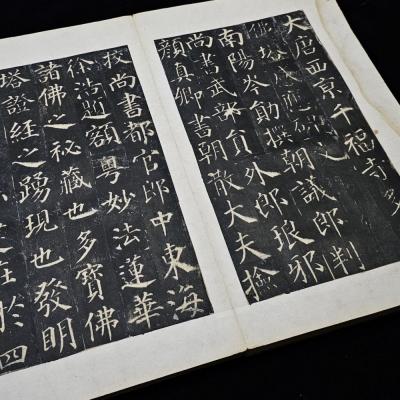 大唐西京千福寺多
佛塔感應碑
南陽岑勛撰朝議郎判
尚書武部員外郎琅邪
顏真卿書朝散大夫檢
校尚書都官郎中東海
徐浩題額粵妙法蓮華
諸佛之秘藏也多寶佛
塔證經之踴現也發明
在於四